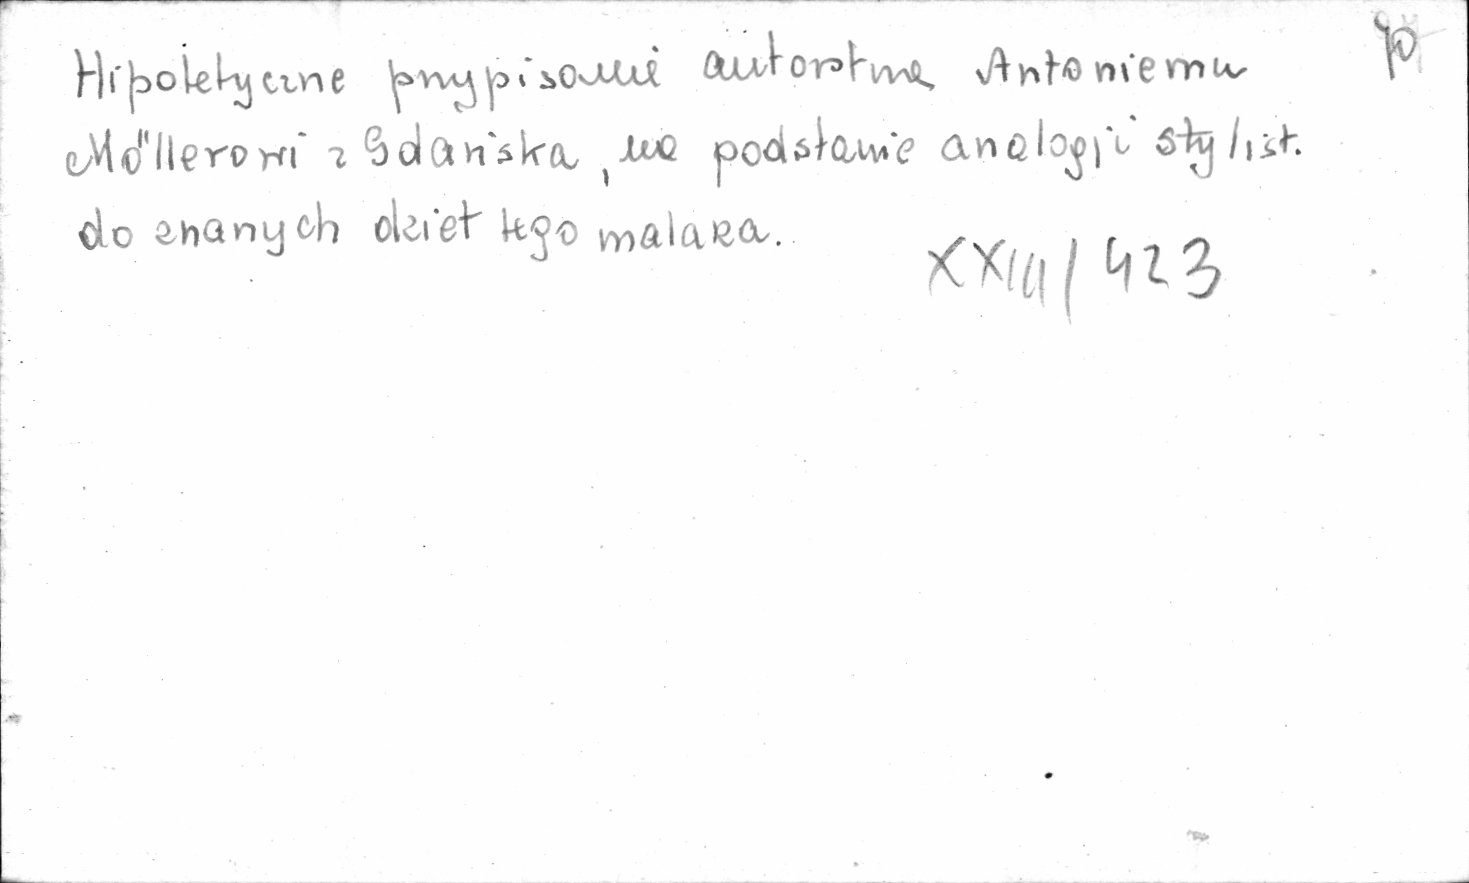 Hipotetyczne przypisanie autorstwa Antoniemu
Möllerowi z Gdańska, na podstawie analogji stylist.
do znanych dzieł tego malarza.
XXIII/423